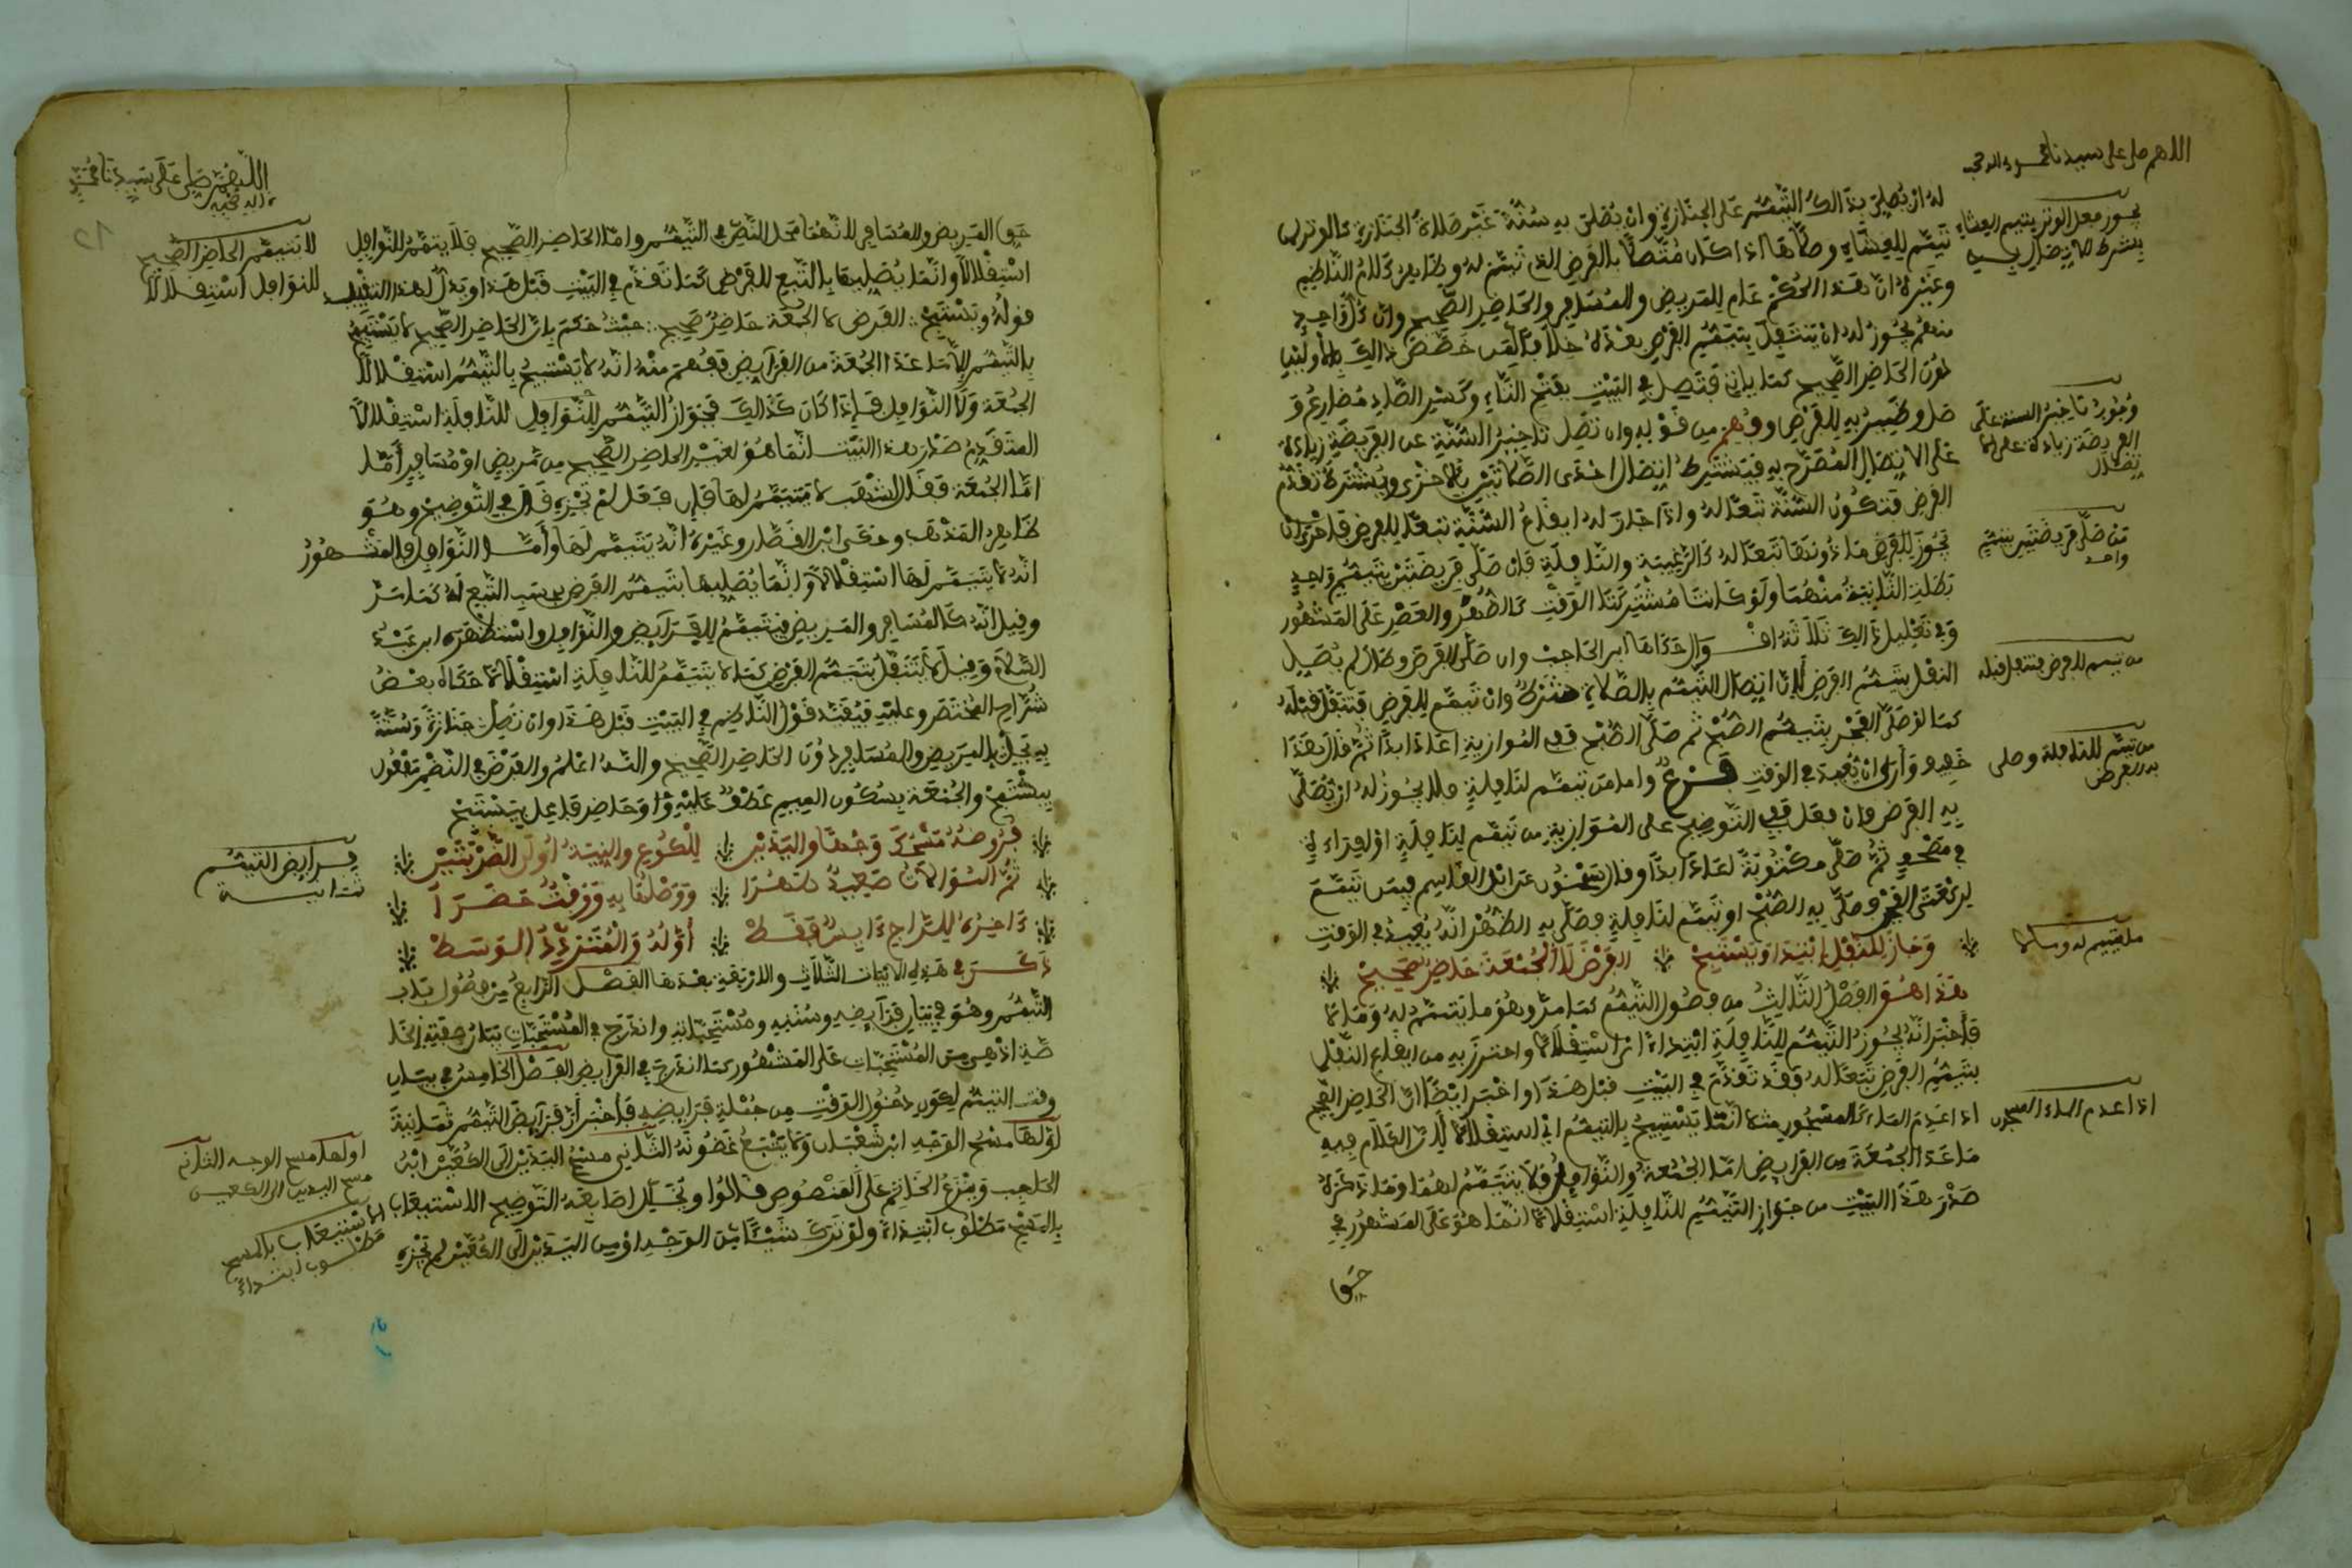 اللهم صل على سيدنا محمد وءاله وصحبه
له ان يصلي بذالك التيمم على الجنازة وان يصلي به سنة غير صلاة الجنازة كالوتر
تيمم للعشاء وصلاها اذا كان متصلا بالفرض الذي تيمم له وظاهر كلام الناظم
وغيره ان هذا الحكم عام للمريض والمسافر والحاضر الصحيح وان كل واحد
منهم يجوز له ان يتنفل بتيمم الفرض بعده خلافا لمن خصص ذالك بالاولين
دون الحاضر الصحيح كما ياتي فتصل في البيت بفتح التاء وكسر الصاد مضارع
وصل وضمير به للفرض وفهم من قوله وان تصل تاخير السنة عن الفريضة زيادة
على الاتصال المصرح به فيشترط اتصال احدى الصلاتين بالاخرى ويشترط تقدم
الفرض فتكون السنة تبعا له واذا جاز له ايقاع السنة تبعا للفرض فاحرى ان
تجوز للفرض ما دونها تبعا له كالرغيبة والنافلة فان صلى فريضتين بتيمم واحد
بطلت الثانية منهما ولو كانتا مشتركتا الوقت كالظهر والعصر على المشهور
وفي تعليل ذالك ثلاثة اقوال حكاها ابن الحاجب وان صلى الفرض وطال لم يصل
النفل بتيمم الفرض لان اتصال التيمم بالصلاة شرط وان تيمم للفرض فتنفل قبله
كما لو صلى الفجر بتيمم الصبح ثم صلى الصبح ففي الموازية اعاد ابدا ثم قال هذا
خفيف وارى ان يعيد في الوقت فرع واما من تيمم لنافلة فلا يجوز له ان يصلي
به الفرض فان فعل ففي التوضيح على الموازية من تيمم لنافلة او لقراءة
في مصحف ثم صلى مكتوبة اعاد ابدا وقال سحنون عن ابن القاسم فيمن تيمم
لركعتي الفجر فصلى به الصبح او تيمم لنافلة فصلى به الظهر انه يعيد في الوقت
وجاز للنفل ابتدا ويستبيح الفرض لا الجمعة حاضر صحيح
هذا هو الفصل الثالث من فصول التيمم كما مر وهو ما يتيمم له وما لا
فاخبر انه يجوز التيمم للنافلة ابتداء اي استقلالا واحترز به من ايقاع النفل
بتيمم الفرض تبعا له فقد تقدم في البيت قبل هذا واخبر ايضا ان الحاضر الصحيح
اذا عدم الماء كالمسجون مثلا انما يستبيح بالتيمم اي استقلالا لان الكلام فيه
ما عدا الجمعة من الفرايض اما الجمعة والنوافل فلا يتيمم لهما وما ذكره
صدر هذا البيت من جواز التيمم للنافلة استقلالا انما هو على المشهور في
حق
يجوز فعل الوتر بتيمم العشاء
بشرط الاتصال بها
وجوب تاخير السنة على
الفريضة زيادة على الا
تصال
من صلى فريضتين بتيمم
واحد
من تيمم للفرض فتنفل قبله
من تيمم للنافلة وصلى
به الفرض
ما يتيمم له وما لا
اذا عدم الماء المسجون
اللهم صل على سيدنا محمد
وءاله وصحبه
حق المريض والمسافر لانهما محل النص في التيمم واما الحاضر الصحيح فلا يتيمم للنوافل
استقلالا وانما يصليها بالتبع للفرض كما تقدم في البيت قبل هذا ويدل لهذا التقييد
قوله ويستبيح الفرض لا الجمعة حاضر صحيح حيث حكم بان الحاضر الصحيح لا يستبيح
بالتيمم الا ما عدا الجمعة من الفرايض ففهم منه انه لا يستبيح بالتيمم استقلالا
الجمعة ولا النوافل فاذا كان كذالك فجواز التيمم للنوافل للنافلة استقلالا
المتقدم صدر هذا البيت انما هو لغير الحاضر الصحيح من مريض او مسافر اما
اما الجمعة فقال اشهب لا يتيمم لها فان فعل لم تجزه قال في التوضيح وهو
ظاهر المذهب وحكى ابن القصار وغيره انه يتيمم لها واما النوافل فالمشهور
انه لا يتيمم لها استقلالا وانما يصليها بتيمم الفرض بسبب التبع له كما مر
وقيل انه كالمسافر والمريض فيتيمم للفرايض والنوافل واستظهره ابن عبد
السلام وقيل لا يتنفل بتيمم الفرض كما لا يتيمم للنافلة استقلالا حكاه بعض
شراح المختصر وعليه فيقيد قول الناظم في البيت قبل هذا وان تصل جنازة وسنة
به يحل بالمريض والمسافر دون الحاضر الصحيح والله اعلم والفرض في النظم مفعول
يستبيح والجمعة بسكون الميم عطف عليه وحاضر فاعل يستبيح
فروضه مسحك وجها واليدين للكوع والنية اولى الضربتين
ثم الموالاة صعيد طهرا ووصلها به ووقت حضرا
ءاخره للراج ءايس فقط اوله والمتردد الوسط
ذكر في هذه الابيات الثلاث والاربعة بعدها الفصل الرابع من فصول باب
التيمم وهو في بيان فرايضه وسننه ومستحباته واندرج في المستحبات بيان صفته الخا
صة اذ هي من المستحبات على المشهور كما اندرج في الفرايض الفصل الخامس في بيان
وقت التيمم لكون دخول الوقت من جملة فرايضه فاخبر ان فرايض التيمم ثمانية
اولها مسح الوجه ابن شعبان ولا يتتبع غضونه الثاني مسح اليدين الى الكعين ابن
الحاجب وينزع الخاتم على المنصوص قالوا ويخلل اصابعه التوضيح الاستيعاب
بالمسح مطلوب ابتداء ولو ترك شيئا من الوجه او من اليدين الى الكعين لم تجزه
لا يتيمم الحاضر الصحيح
للنوافل استقلالا
فرايض التيمم
ثمانية
اولها مسح الوجه الثاني
مسح اليدين الى الكعين
الاستيعاب بالمسح
مطلوب ابتداء